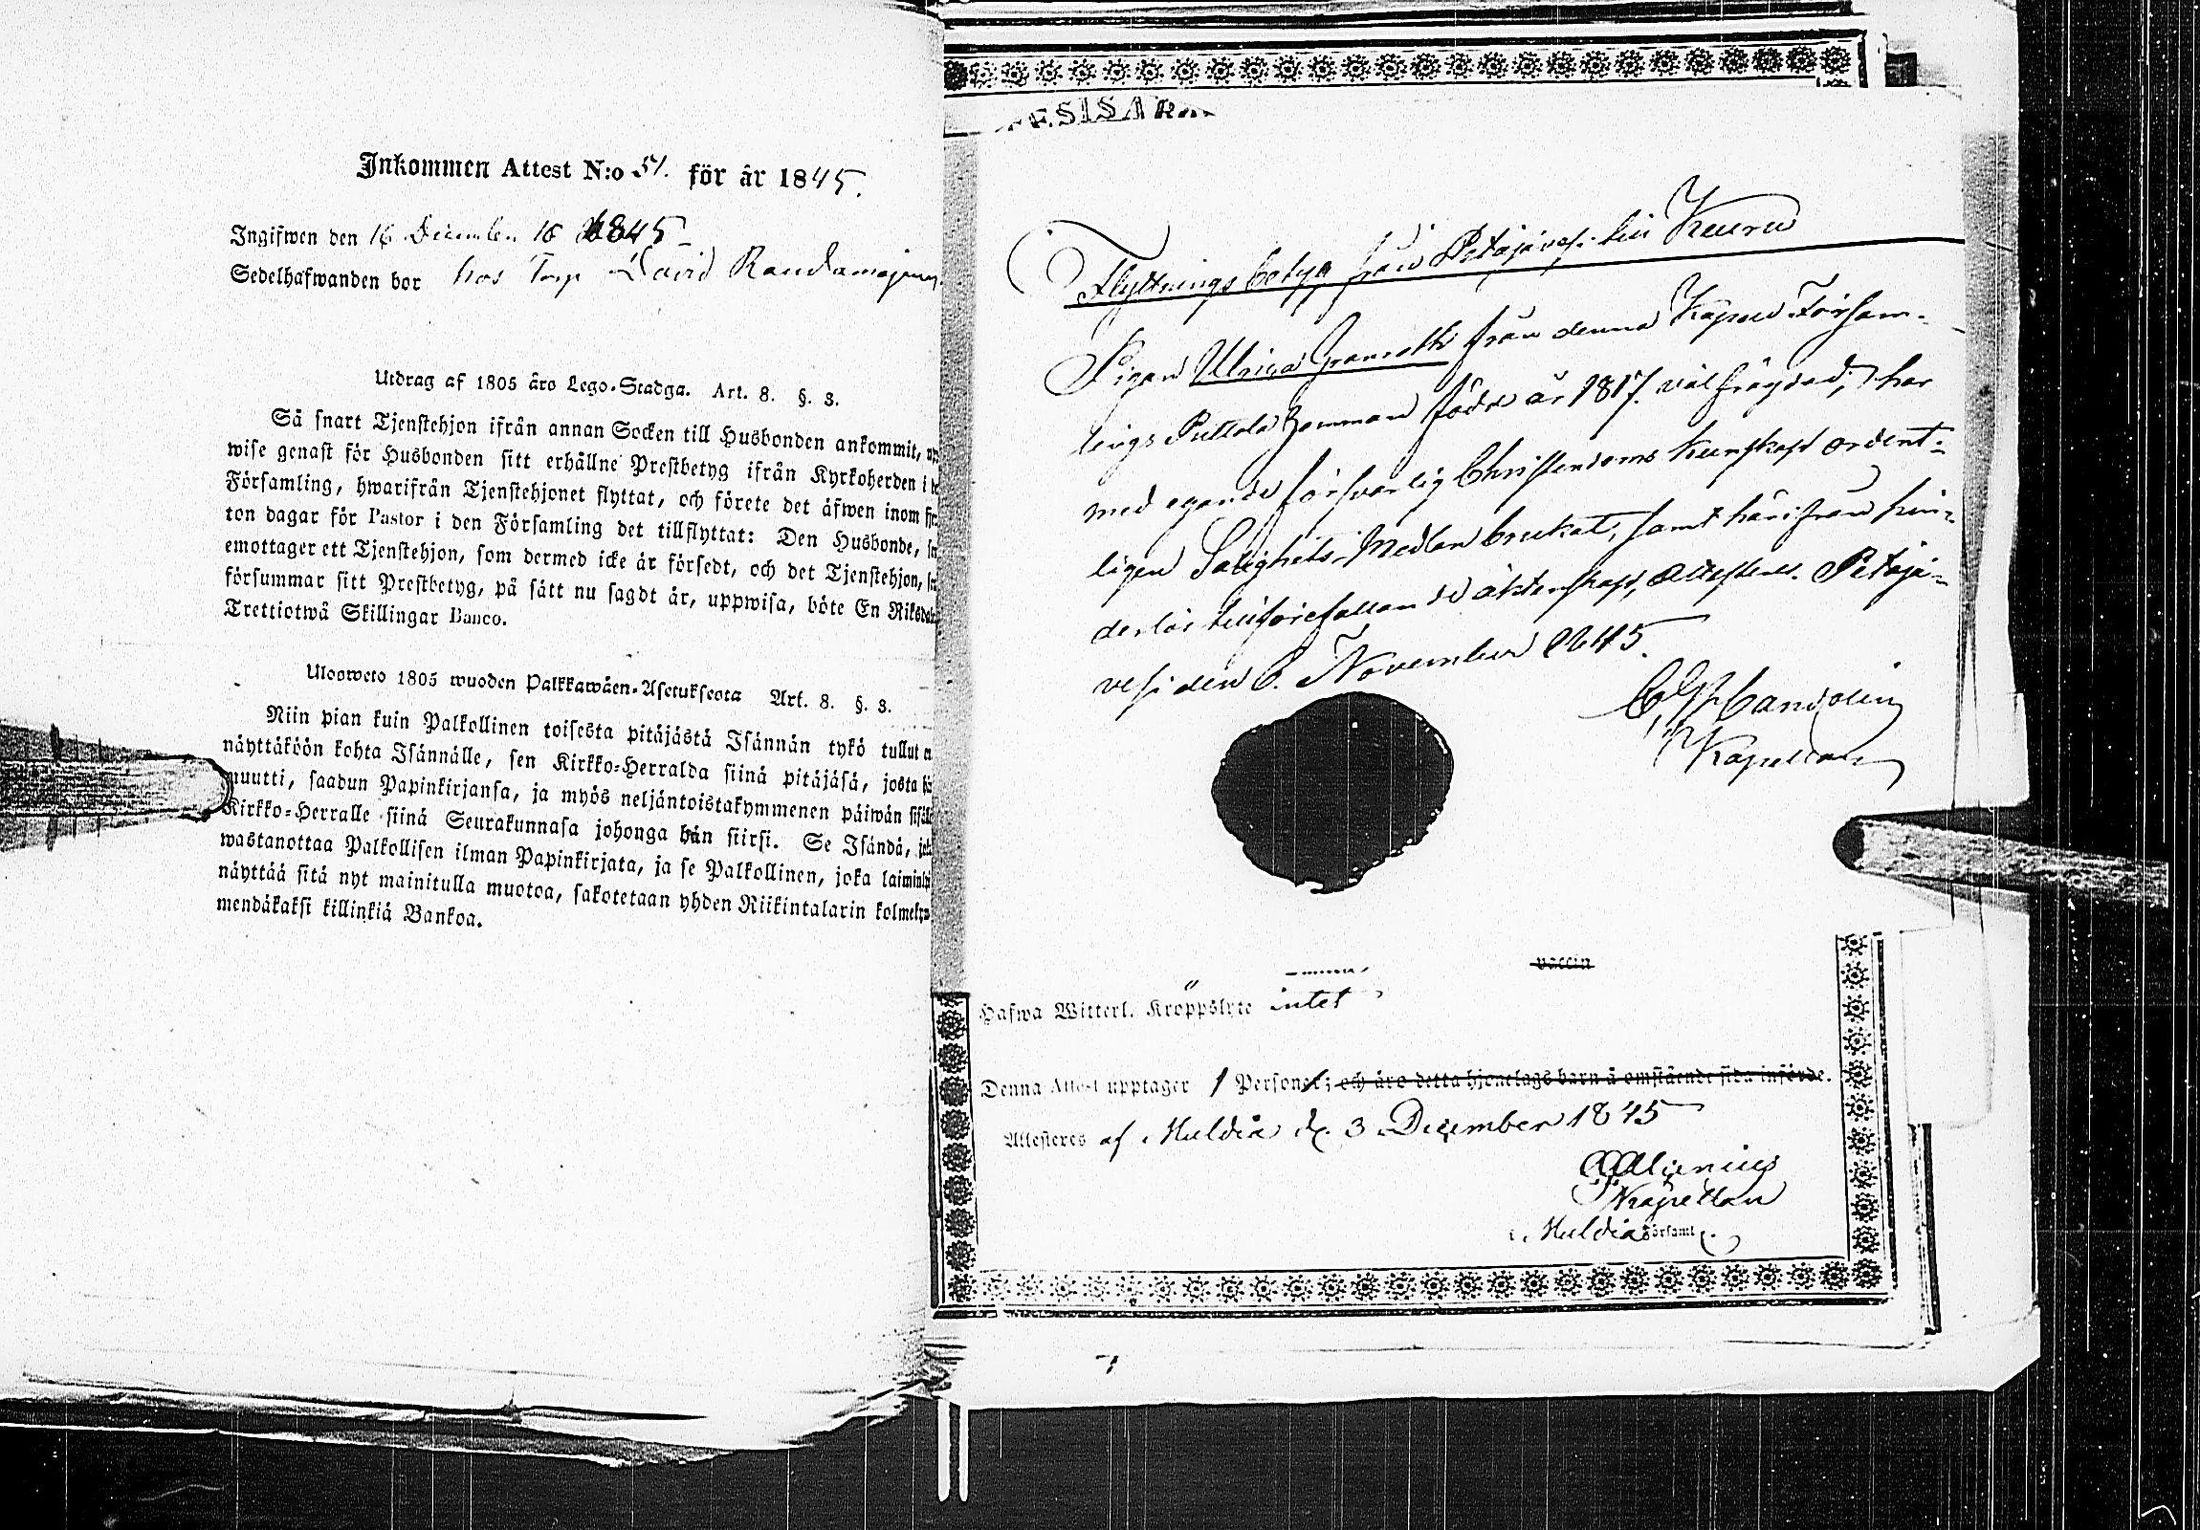 Inkommen Attest N:o 51. för år 1845.
Ingifwen den 16 December 18 1845
Sedelhafwanden bor hos Torp David Raudamajeny
Utdrag af 1805 åro Lego-Stadga. Art. 8. §. 3.
Så snart Tjenstehjon ifrån annan Socken till Husbonden ankommit, upp
wise genast för Husbonden sitt erhållne Prestbetyg ifrån Kyrkoherden i
Församling, hwarifrån Tjenstehjonet flyttat, och förete det äfwen inom fjor
ton dagar för Pastor i den Församling det tillflyttat: Den Husbonde,
emottager ett Tjenstehjon, som dermed icke är försedt, och det Tjenstehjon,
försummar sitt Prestbetyg, på sätt nu sagdt är, uppwisa, böte En Riksdaler
Trettiotwå Skillingar Banco.
Uloswето 1805 wuoden Palkkawäen-Asetuksesta Art. 8. §. 3.
Niin pian kuin Palkollinen toisesta pitäjästä Isännän tykö tullut
näyttäköön kohta Isännälle, sen Kirkko-Herralda siinä pitäjäsä, josta
muutti, saadun Papinkirjansa, ja myös neljäntoistakymmenen päiwän sisälle
Kirkko-Herralle siinä Seurakunnasa johonga hän siirsi. Se Isändä,
wastanottaa Palkollisen ilman Papinkirjata, ja se Palkollinen, joka laiminly
näyttää sitä nyt mainitulla muotoa, sakotetaan yhden Riikintalarin kolmeky
mendäkaksi killinkiä Bankoa.
Flyttningsbetyg från Petäjävesi till Keuru
Pigan Ulrica Granroth från denna Kapell Församlings
Puttola hemman född år 1817. välfrägdad, har
med egande försvarlig Christendoms kunskap ordent-
ligen Salighets-Medlen brukat, samt härifrån hin-
derlös till förefallande äktenskap, Attesteras. Petäjä-
vesi den 6. November 1845.
C. G. Candolin
Kapellan
vaccin
Hafwa Witterl. Kroppslyte intet
Denna Attest upptager 1 Personer; och äro detta hjonelags barn å omstående sida införde.
Attesteres af Muldia d. 3 December 1845
Alcenius
Kapellan
i Muldia Församl.